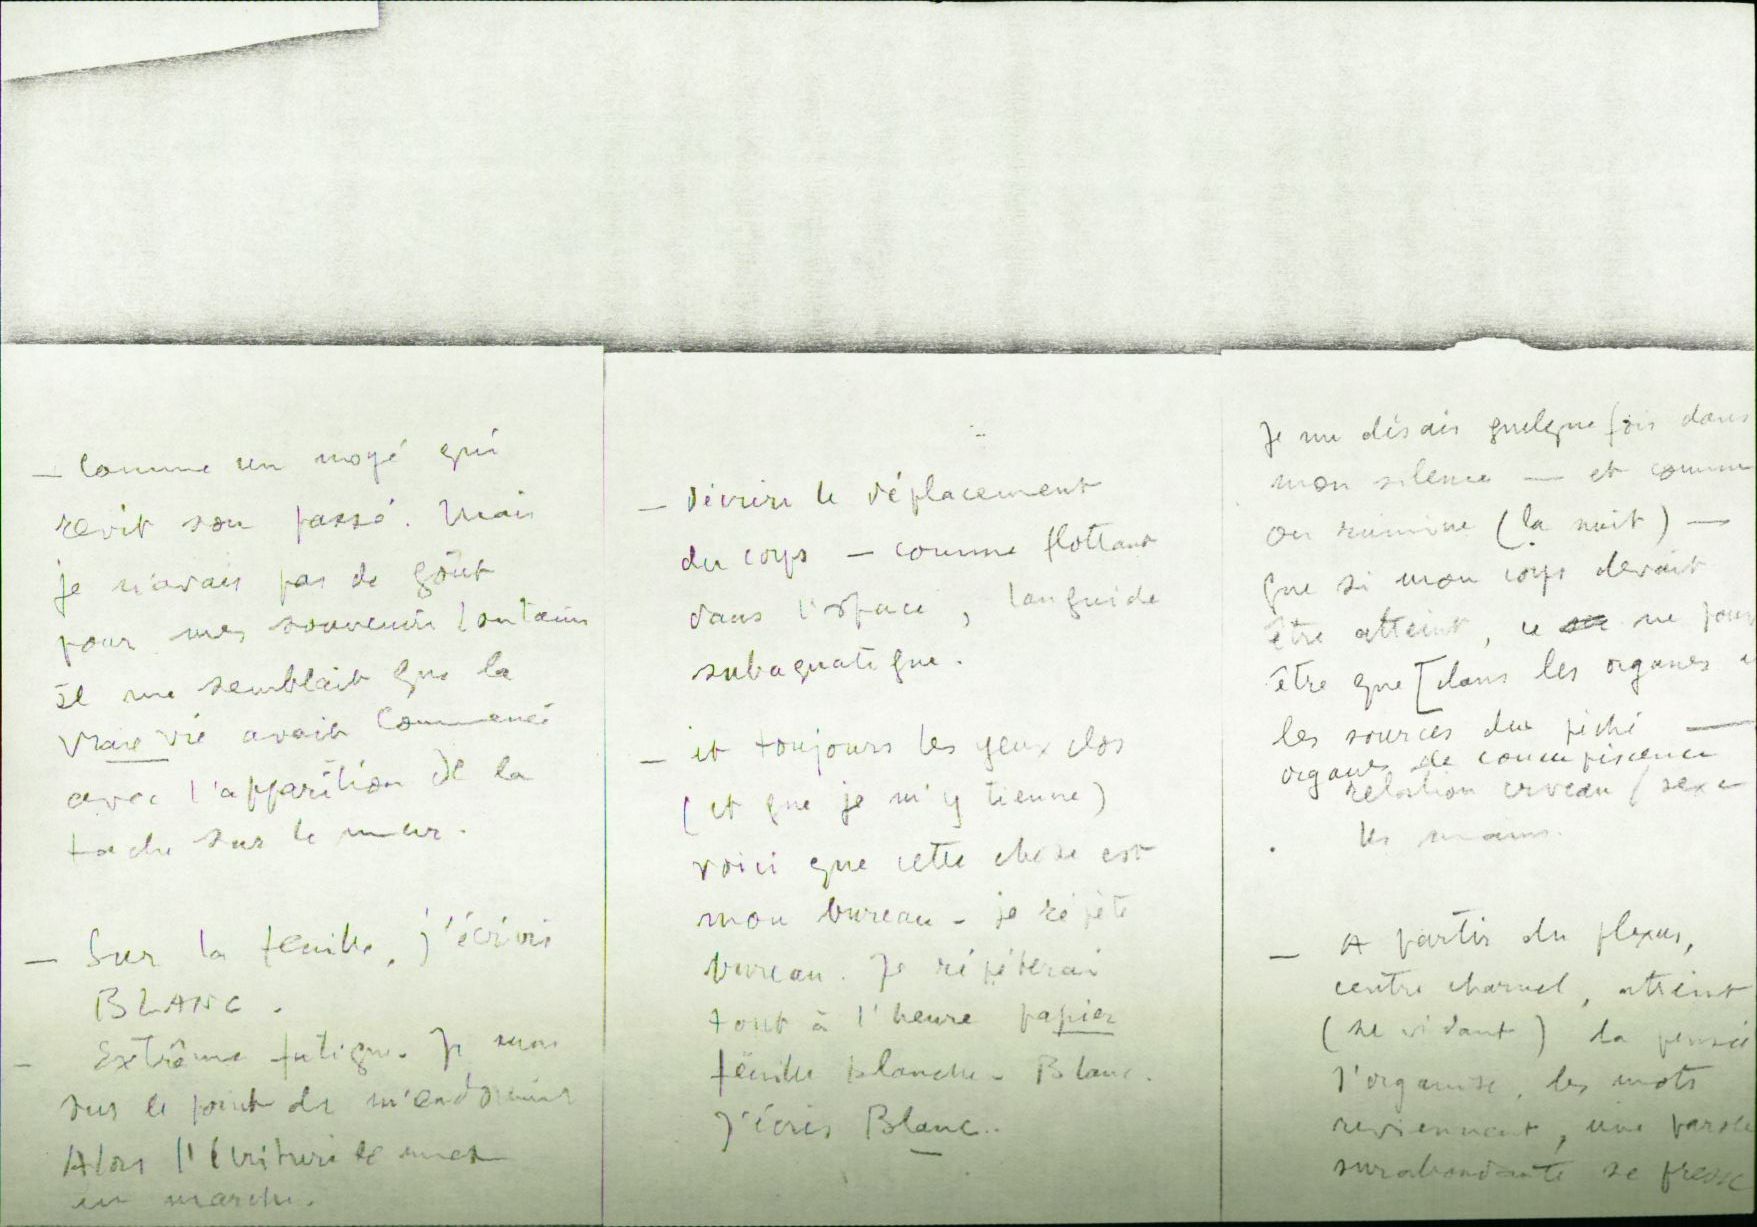 — Comme un noyé qui
revit son passé. Mais
je n'avais pas de goût
pour mes souvenirs lontains
il me semblait que la
vraie vie avait commencé
avec l'apparition de la
tache sur le mur.
— Sur la feuille, j'écris
BLANC.
— Extrême fatigue. Je suis
sur le point de m'endormir
Alors l'écriture se met
en marche.
— Décrire le déplacement
du corps — comme flottant
dans l'espace, languide
subaquatique.
— et toujours les yeux clos
(et que je m'y tienne)
voici que cette chose est
mon bureau - je répète
bureau. Je répéterai
tout à l'heure papier
feuille blanche - Blanc.
J'écris Blanc..
Je me disais quelque fois dans
mon silence — et comme
on rumine (la nuit) —
que si mon corps devait
être atteint, ce ne
être que [dans les organes
les sources du péché —
organes de concupiscence
relation cerveau / sexe
les mains.
— A partir du plexus,
centre charnel, atteint
(se vidant) la pensée
s'organise, les mots
reviennent, une parole
surabondante se presse